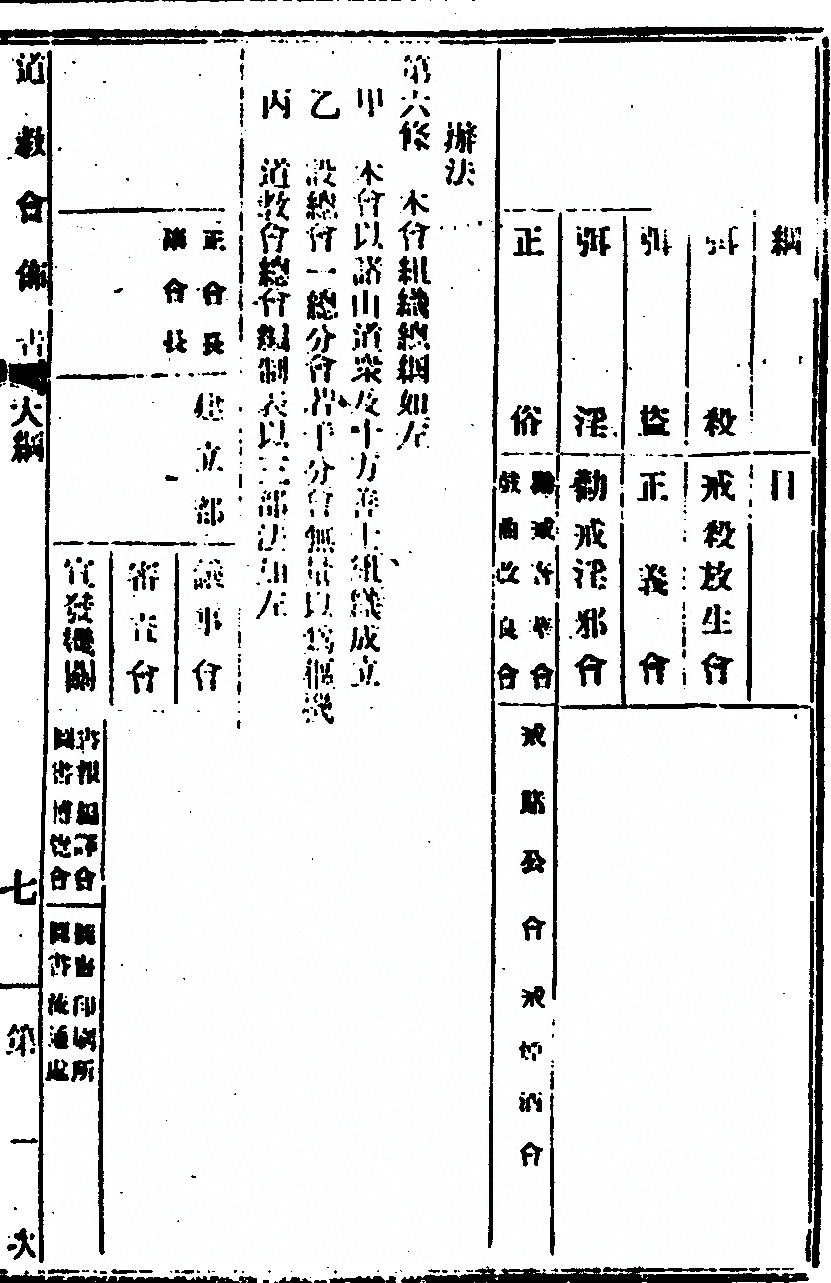 綱 目
弭殺 戒殺放生會
弭盜 正義會
弭淫 勸戒淫邪會
正俗 戒奢華會
戲曲改良會
戒賭公會 戒煙酒會
辦法
第六條 本會組織總綱如左
甲 本會以諸山道衆及十方善士組織成立
乙 設總會一總分會若干分會無量以爲樞機
丙 道教會總會編制表以三部法如左
正會長
副會長
建立部
議事會
審查會
宣發機關
書報編譯會
圖書博覽會
印刷所
圖書流通處
道教會佈告 大綱 七 第一次